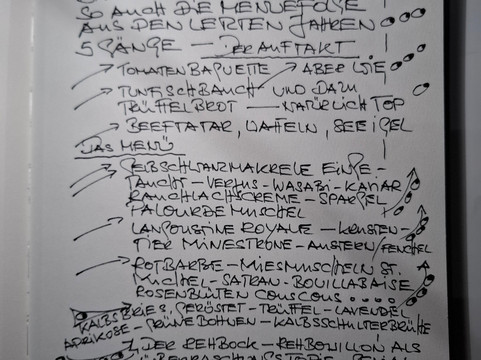 SO AUCH DIE MENUEFOLGE
AUS DEN LETZTEN JAHREN
5 GÄNGE — DER AUFTAKT
TOMATENBAGUETTE ABER WIE
TUNFISCHBAUCH UND DAZU
TRÜFFELBROT — NATÜRLICH TOP
BEEFTATAR, WAFFELN, SEEIGEL
DAS MENÜ
GELBSCHWANZMAKRELE EINGE-
TAUCHT - VERJUS - WASABI - KAVIAR
RAUCHLACHSCREME - SPARGEL
PALOURDE MUSCHEL
LANGOUSTINE ROYALE - KRUSTEN-
TIER MINESTRONE - AUSTERN / FENCHEL
ROTBARBE - MIESMUSCHELN ST.
MICHEL - SAFRAN - BOUILLABAISE
ROSENBLÜTEN COUSCOUS ....
KALBSBRIES, GERÖSTET - TRÜFFEL - LAVENDEL
APRIKOSE - GRÜNE BOHNEN - KALBSSCHULTERBRÜHE
DER REHBOCK - REHBOUILLON ALS